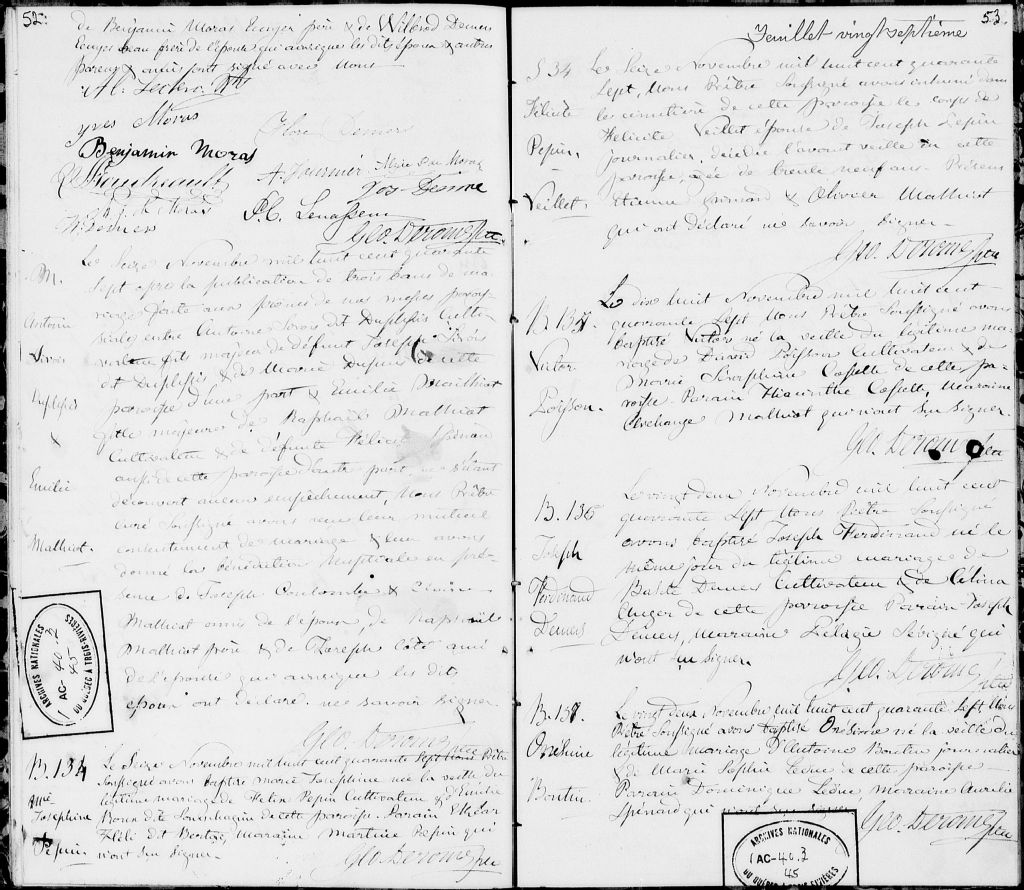 52.
de Benjamin Moras Ecuyer père & de Wilbrod Demers
Ecuyer beau père de l'épouse qui ainsi que les dits époux & autres
parens & amis sont signé avec Nous
Yves Moras
Flore Demers
Benjamin Moras
A. Fournier
Jos. Demers
Geo. Derome Ptre
M.
Antoine
Sirois
Duplessis
&
Emilie
Mathiot.
Le Seize Novembre mil huit cent quarante
Sept après la publication de trois bans de ma-
riage faite aux prônes de nos messes parois-
siales entre Antoine Sirois dit Duplessis Culti-
vateur fils majeur de défunt Joseph Sirois
dit Duplessis & de Marie Dupuis de cette
paroisse d'une part & Emilie Mathiot
fille majeure de Raphaël Mathiot
Cultivateur & de défunte Félicité
aussi de cette paroisse d'autre part, ne s'étant
découvert aucun empêchement, Nous Prêtre
curé Soussigné avons reçu leur mutuel
consentement de mariage & leur avons
donné la bénédiction Nuptiale en pré-
sence de Joseph Coulombe &
Mathiot amis de l'époux, de Raphaël
Mathiot père & de Joseph Coté ami
de l'épouse qui ainsi que les dits
époux ont déclaré ne savoir signer.
Geo. Derome Ptre
B. 134
Josephine
Pepin
Le Seize Novembre mil huit cent quarante Sept Nous Prêtre
Soussigné avons baptisé Marie Josephine née la veille du
légitime mariage de Felix Pepin Cultivateur & d'Emilie
de cette paroisse. Parain
Maraine Martine Pepin qui
n'ont su signer.
Geo. Derome Ptre
ARCHIVES NATIONALES
AC-40-2
45
DU QUÉBEC A TROIS-RIVIÈRES
53.
Feuillet vingt septième
S 34
Félicité
Pepin,
Veillet.
Le Seize Novembre mil huit cent quarante
Sept, Nous Prêtre Soussigné avons inhumé dans
le cimetière de cette paroisse le corps de
Félicité Veillet épouse de Joseph Pepin
journalier, décédée l'avant veille en cette
paroisse, agée de trente neuf ans. Présens
Etienne & Olivier Mathiot
qui ont déclaré ne savoir signer.
Geo. Derome Ptre
B. 135.
Victor
Poisson.
Le dix huit Novembre mil huit cent
quarante Sept Nous Prêtre Soussigné avons
baptisé Victor né la veille du légitime ma-
riage de David Poisson Cultivateur & de
Marie Seraphine Costelle de cette pa-
roisse Parain Hiacinthe Costelle, Maraine
Archange Mathiot qui n'ont su signer
Geo. Derome Ptre
B. 136
Joseph
Ferdinand
Demers
Le vingt deux Novembre mil huit cent
quarante Sept Nous Prêtre Soussigné
avons baptisé Joseph Ferdinand né le
même jour du légitime mariage de
Bapte Demers Cultivateur & de Célina
Auger de cette paroisse Parain Joseph
Demers, Maraine Pelagie Sévigné qui
n'ont su signer
Geo. Derome Ptre
B. 137.
Onésime
Boutin.
Le vingt deux Novembre mil huit cent quarante Sept Nous
Prêtre Soussigné avons baptisé Onésime né la veille du
légitime mariage D'Antoine Boutin journalier
& de Marie Sophie Leduc de cette paroisse
Parain Dominique Leduc Maraine Aurelie
qui n'ont su signer
Geo. Derome Ptre
ARCHIVES NATIONALES
AC-40-2
45
DU QUÉBEC A TROIS-RIVIÈRES